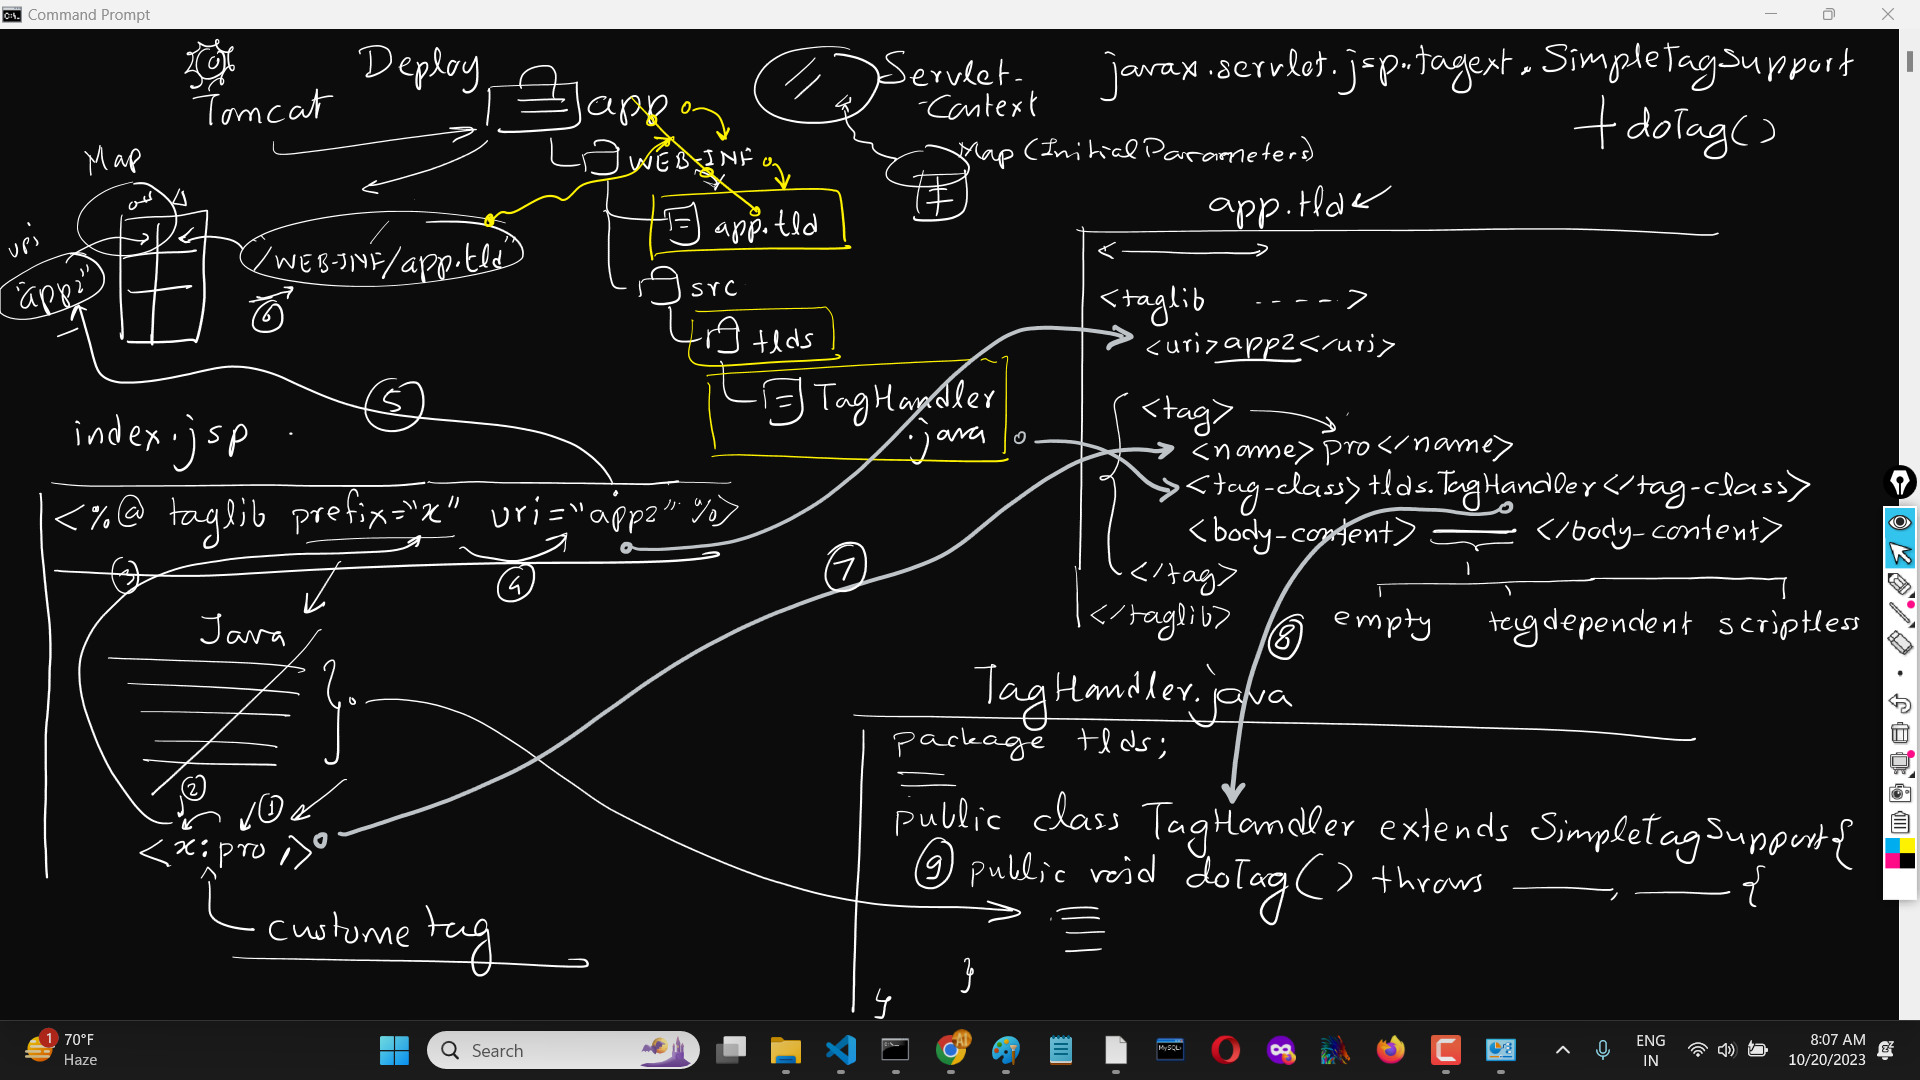 Command Prompt
Tomcat
Deploy
app
WEB-INF
app.tld
src
tlds
TagHandler
.java
Servlet-
-Context
Map (Initial Parameters)
javax.servlet.jsp.tagext.SimpleTagSupport
+ doTag()
Map
uri
"app2"
"/WEB-INF/app.tld"
6
5
index.jsp
<%@ taglib prefix="x" uri="app2" %>
3
4
7
Java
2
1
<x:pro />
custome tag
app.tld
<taglib ----->
<uri>app2</uri>
<tag>
<name>pro</name>
<tag-class>tlds.TagHandler</tag-class>
<body-content> </body-content>
</tag>
</taglib>
empty tagdependent scriptless
8
TagHandler.java
package tlds;
public class TagHandler extends SimpleTagSupport{
9 public void doTag() throws ____, ____ {
}
}
70°F
Haze
1
Search
ENG
IN
8:07 AM
10/20/2023